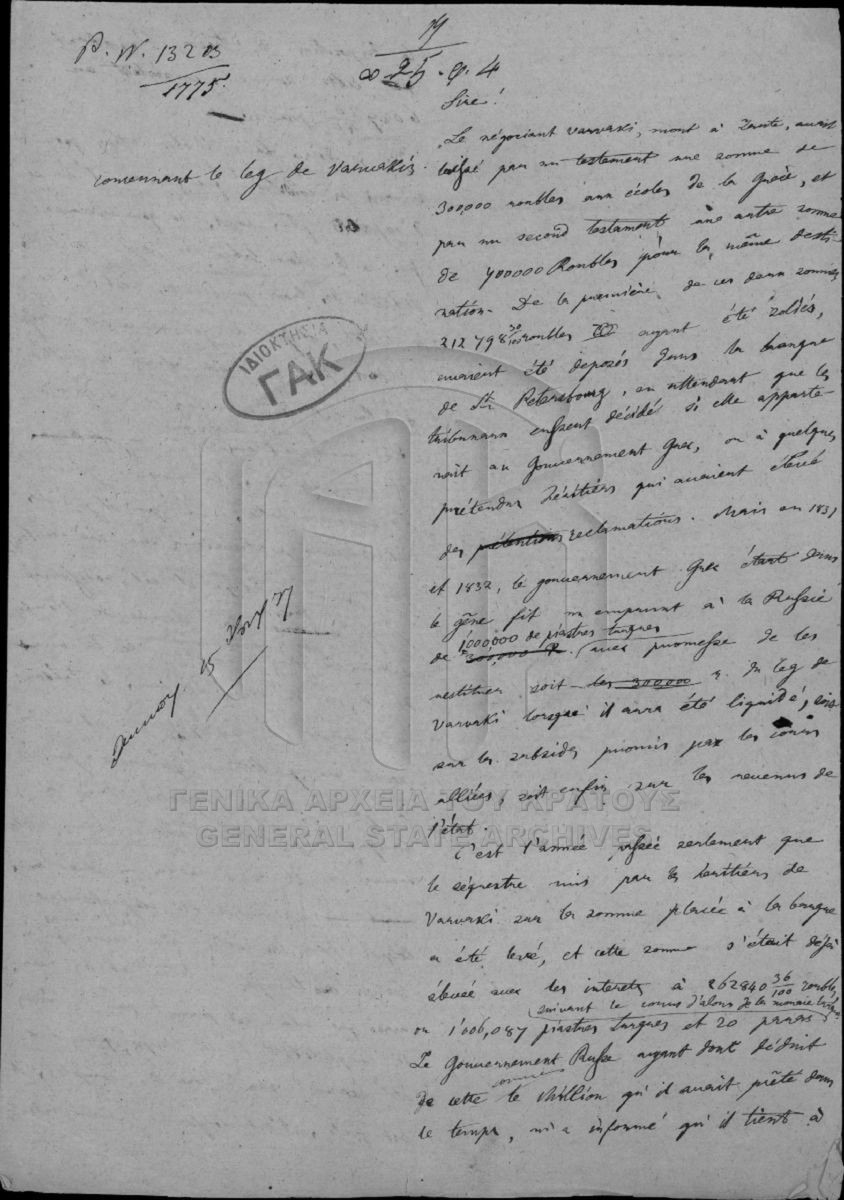 P. N. 13203
1775.
25
Sire!
concernant le leg de Varvakis.
Le négociant Varvaki, mort à Zante, avait
laissé par un testament une somme de
300,000 roubles aux écoles de la Grèce, et
par un second testament une autre somme
de 400000 Roubles pour la même desti-
nation. De la première de ces deux sommes
212798 30/100 roubles ayant été soldés,
avaient été deposés dans la banque
de St. Petersbourg, en attendant que les
tribunaux eussent décidé si elle apparte-
nait au Gouvernement Grec, ou à quelques
prétendus héritiers qui avaient élevé
des prétentions reclamations. Mais en 1831
et 1832, le gouvernement Grec étant dans
le gêne fit un emprunt à la Russie
1'000,000 de piastres turques
de 300,000 R. avec promesse de les
restituer soit les 300,000 r. du leg de
Varvaki lorsqu'il aura été liquidé, soit
sur les subsides promis par les cours
alliées, soit enfin sur les revenus de
l'état.
C'est l'année passée seulement que
le séquestre mis par les héritiers de
Varvaki sur la somme placée à la banque
a été levé, et cette somme s'était déjà
élevée avec les interets à 262840 36/100 roubles
suivant le cours d'alors de la monnaie turque
ou 1'006,087 piastres turques et 20 paras
Le Gouvernement Russe ayant dont déduit
de cette somme le Million qu'il avait prêté dans
le temps, m'a informé qu'il tient à
15
ΙΔΙΟΚΤΗΣΙΑ
ΓΑΚ
ΓΕΝΙΚΑ ΑΡΧΕΙΑ ΤΟΥ ΚΡΑΤΟΥΣ
GENERAL STATE ARCHIVES